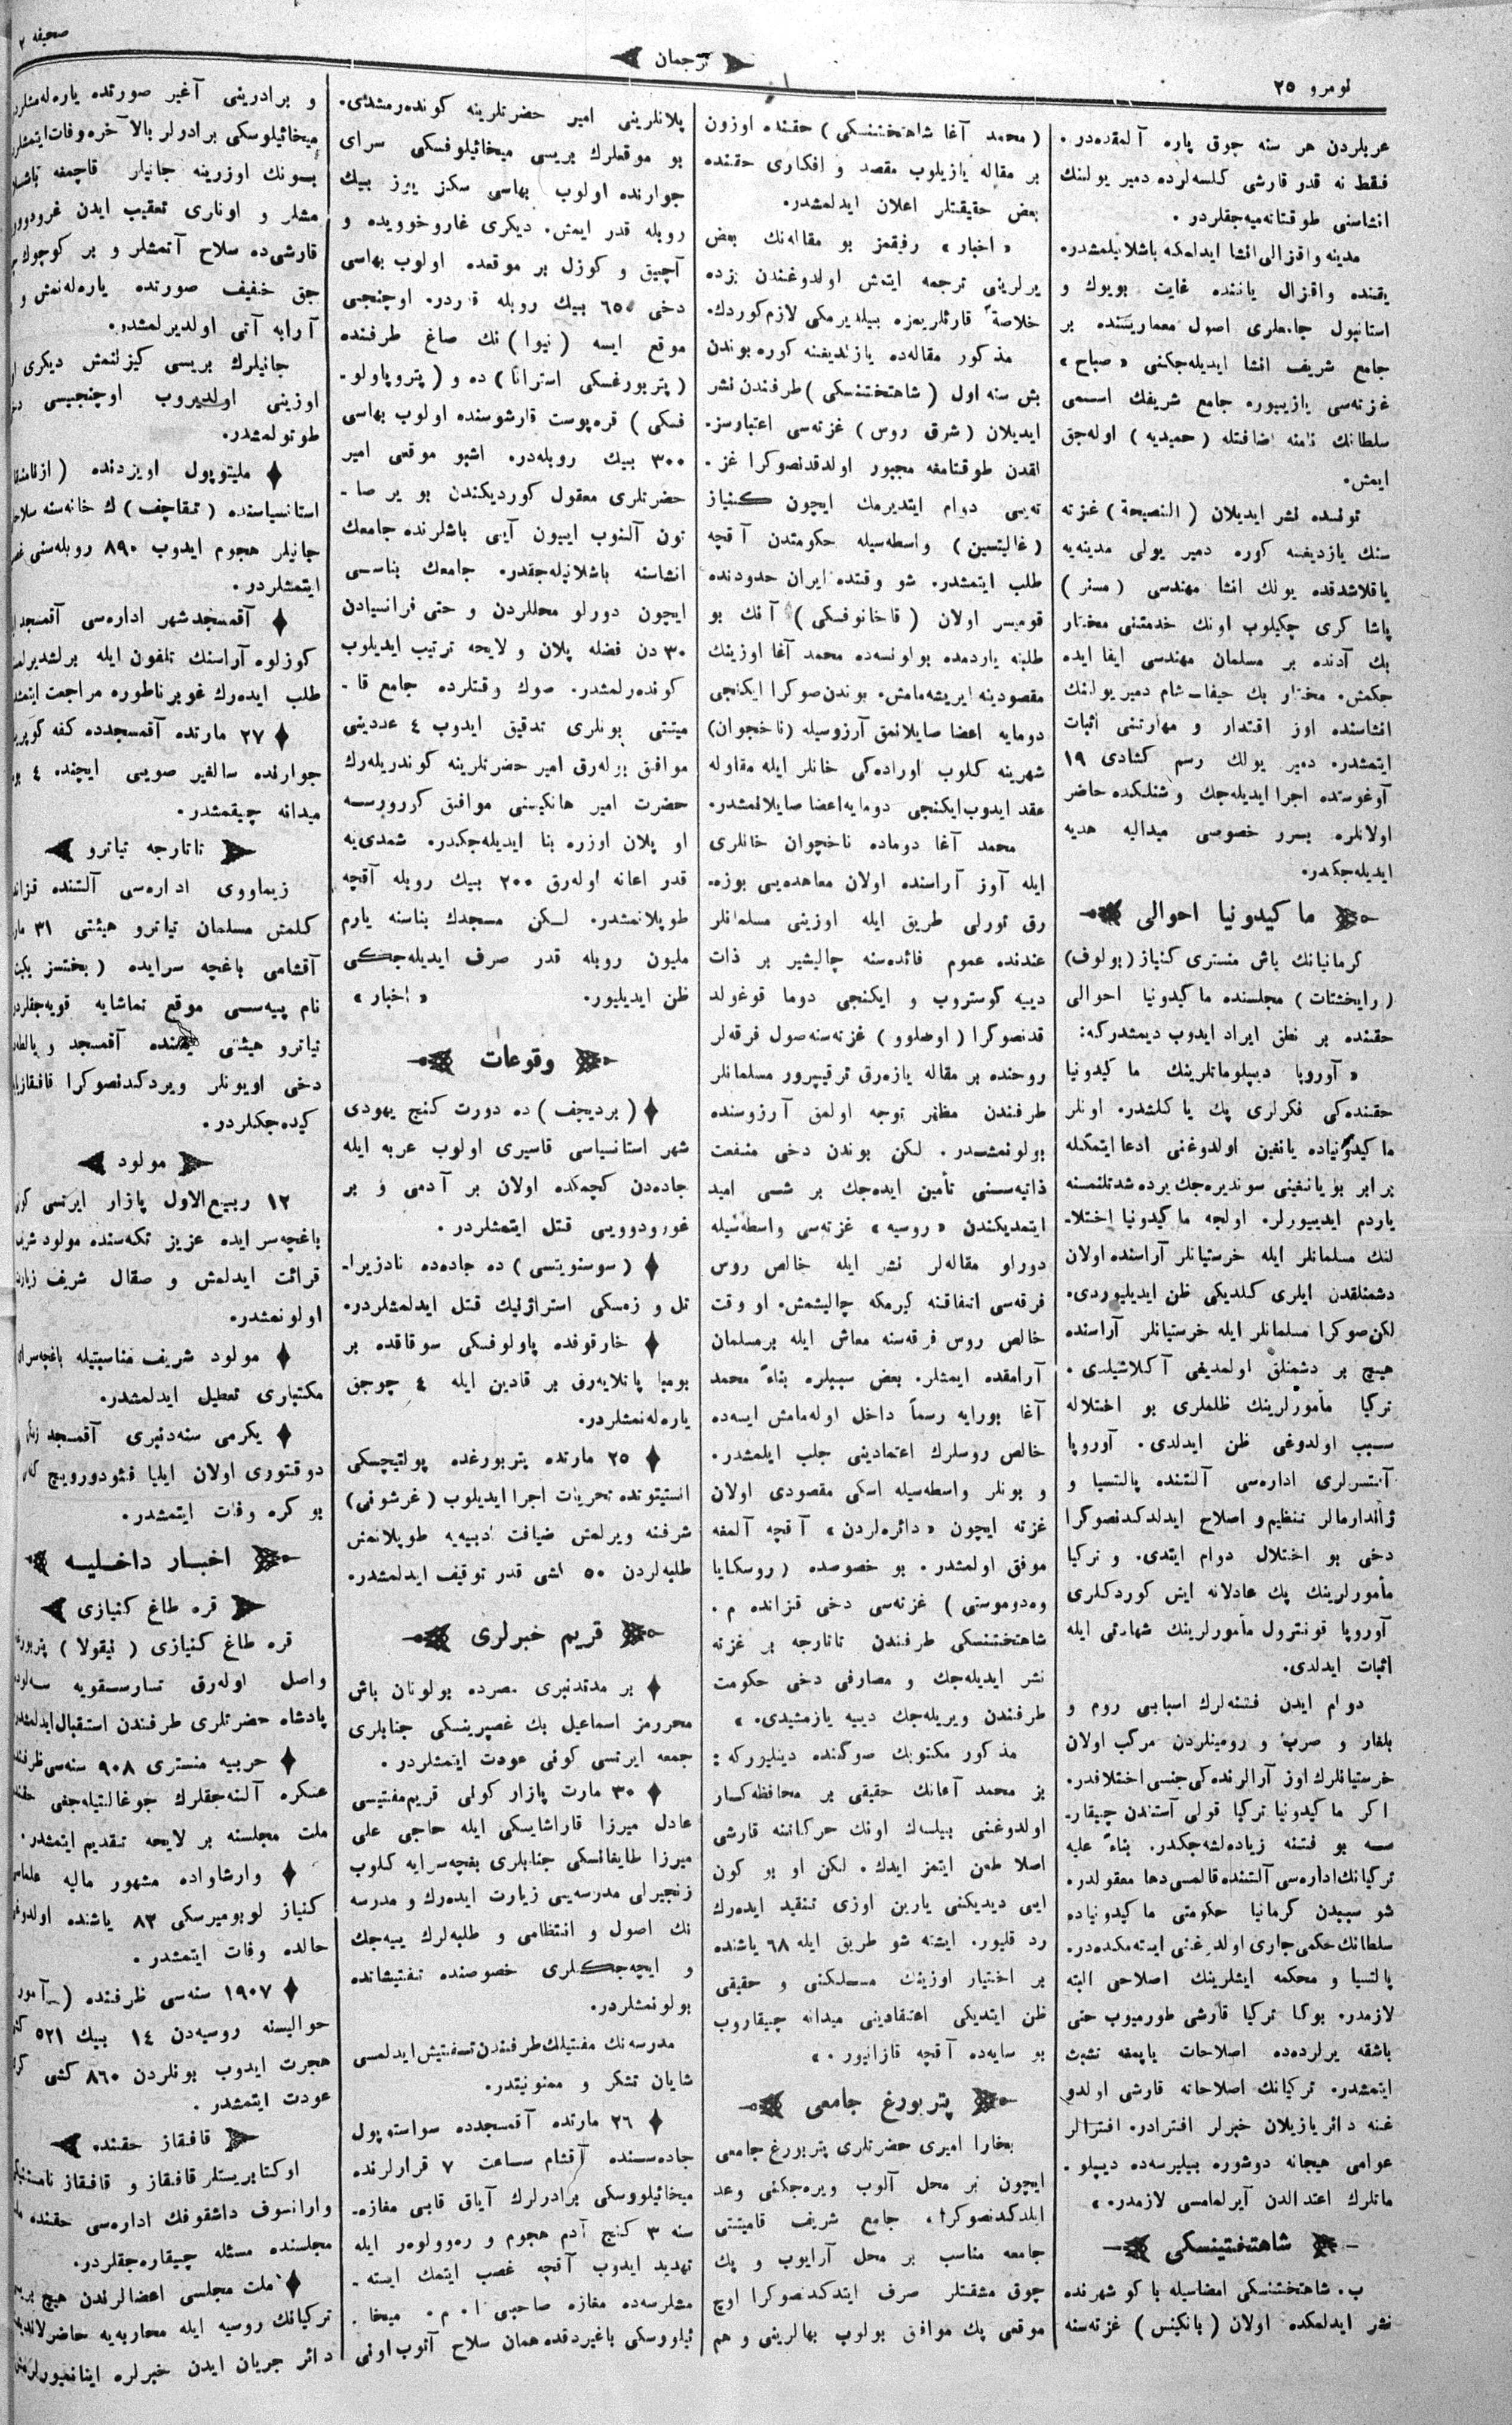 نومرو ٢٥
ترجمان
صحيفه ٢
عربلردن هر سنه جوق پاره آلمقده‌در.
فقط نه قدر قارشى كلسه‌لرده دمير يولنك
انشاسنى طوقتانه‌ميه‌جقلردر.
مدينه واقزالى انشا ايدلمكه باشلانيلمشدر.
يقنده واقزال ياننده غايت بويوك و
استانبول جامعلرى اصول معماريسنده بر
جامع شريف انشا ايديله‌جكنى «صباح»
غزته‌سى يازييوره جامع شريفك اسمى
سلطانك نامنه اضافتله (حميديه) اوله‌جق
ايمش.
تونسده نشر ايديلان (النصيحة) غزته
سنك يازديغنه كوره دمير يولى مدينه‌يه
ياقلاشدقده يولك انشا مهندسى (مسنر)
پاشا كرى چكيلوب اونك خدمتنى مختار
بك آدنده بر مسلمان مهندسى ايفا ايده
جكمش. مختار بك حيفا ـ شام دمير يولنك
انشاسنده اوز اقتدار و مهارتنى اثبات
ايتمشدر. دمير يولك رسم كشادى ١٩
آوغوستده اجرا ايديله‌جك و شنلكده حاضر
اولانلره بسرر خصوصى ميداليه هديه
ايديله‌جكدر.
ماكيدونيا احوالى
كرمانيانك باش منسترى كنياز (بولوف)
(رايخشتات) مجلسنده ماكيدونيا احوالى
حقنده بر نطق ايراد ايدوب ديمشدركه:
«آوروپا ديپلوماتلرينك ماكيدونيا
حقنده‌كى فكرلرى پك ياكلشدر. اونلر
ماكيدونياده يانغين اولدوغنى ادعا ايتمكله
برابر بو يانغينى سونديره‌جك يرده شدتلنمسنه
ياردم ايدييورلر. اولجه ماكيدونيا اختلا-
لنك مسلمانلر ايله خرستيانلر آراسنده اولان
دشمنلقدن ايلرى كلديكى ظن ايديلييوردى.
لكن صوكرا مسلمانلر ايله خرستيانلر آراسنده
هيچ بر دشمنلق اولمديغى آكلاشيلدى.
تركيا مأمورلرينك ظلملرى بو اختلاله
سبب اولدوغى ظن ايدلدى. آوروپا
آفتسرلرى اداره‌سى آلتنده پالتسيا و
ژاندارمالر تنظيم و اصلاح ايدلدكدنصوكرا
دخى بو اختلال دوام ايتدى. و تركيا
مأمورلرينك پك عادلانه ايش كوردكلرى
آوروپا قونترول مأمورلرينك شهادتى ايله
اثبات ايدلدى.
دوام ايدن فتنه‌لرك اسبابى روم و
بلغار و صرب و رومينلردن مركب اولان
خرستيانلرك اوز آرالرنده‌كى جنسى اختلافدر.
اكر ماكيدونيا تركيا قولى آستندن چيقار-
سه بو فتنه زياده‌لشه‌جكدر. بناءً عليه
تركيانك اداره‌سى آلتنده قالمسى دها معقولدر.
شو سببدن كرمانيا حكومتى ماكيدونياده
سلطانك حكمى جارى اولدوغنى ايسته‌مكده‌در.
پالتسيا و محكمه ايشلرينك اصلاحى البته
لازمدر. بوكا تركيا قارشى طورميوب حتى
باشقه يرلرده‌ده اصلاحات ياپمغه تشبث
ايتمشدر. تركيانك اصلاحانه قارشى اولدو
غنه دائر يازيلان خبرلر افترادر. افترالر
عوامى هيجانه دوشوره بيليرسه‌ده ديپلو-
ماتلرك اعتدالدن آيرلمامسى لازمدر.»
شاهتختينسكى
ب. شاهتختنسكى امضاسيله باكو شهرنده
نشر ايدلمكده اولان (بانكينس) غزته‌سنه
(محمد آغا شاهتختنسكى) حقنده اوزون
بر مقاله يازيلوب مقصد و افكارى حقنده
بعض حقيقتلر اعلان ايدلمشدر.
«اخبار» رفيقمز بو مقاله‌نك بعض
يرلرينى ترجمه ايتمش اولدوغندن بزده
خلاصةً قارئلريمزه بيلديرمكى لازم كوردك.
مذكور مقاله‌ده يازلديغنه كوره بوندن
بش سنه اول (شاهتختنسكى) طرفندن نشر
ايديلان (شرق روس) غزته‌سى اعتبارسز-
لقدن طوقتامغه مجبور اولدقدنصوكرا غز-
ته‌يى دوام ايتديرمك ايچون كنياز
(غاليتسين) واسطه‌سيله حكومتدن آقچه
طلب ايتمشدر. شو وقتده ايران حدودنده
قوميسر اولان (قاخانوفسكى) آنك بو
طلبنه ياردمده بولونسه‌ده محمد آغا اوزينك
مقصودينه ايريشه‌مامش. بوندن صوكرا ايكنجى
دومايه اعضا صايلانمق آرزوسيله (ناخجوان)
شهرينه كلوب اوراده‌كى خانلر ايله مقاوله
عقد ايدوب ايكنجى دومايه اعضا صايلانمشدر.
محمد آغا دوماده ناخچوان خانلرى
ايله آوز آراسنده اولان معاهده‌يى بوزه-
رق تورلى طريق ايله اوزينى مسلمانلر
عندنده عموم فائده‌سنه چاليشير بر ذات
ديپه كوستروب و ايكنجى دوما قوغولد
قدنصوكرا (اوصلوو) غزته‌سنه صول فرقه‌لر
روحنده بر مقاله يازه‌رق ترقيپرور مسلمانلر
طرفندن مظهر توجه اولمق آرزوسنده
بولونمشدر. لكن بوندن دخى منفعت
ذاتيه‌سنى تأمين ايده‌جك بر شى اميد
ايتمديكندن «روسيه» غزته‌سى واسطه‌سيله
دورلو مقاله‌لر نشر ايله خالص روس
فرقه‌سى اتفاقنه كيرمكه چاليشمش. او وقت
خالص روس فرقه‌سنه معاش ايله بر مسلمان
آرامقده ايمشلر. بعض سببلره بناءً محمد
آغا بورايه رسماً داخل اوله‌مامش ايسه‌ده
خالص روسلرك اعتمادينى جلب ايلمشدر.
و بونلر واسطه‌سيله اسكى مقصودى اولان
غزته ايچون «دائره‌لردن» آقچه آلمغه
موفق اولمشدر. بو خصوصده (روسكايا
وه‌دوموستى) غزته‌سى دخى قزانده م.
شاهتختنسكى طرفندن تاتارجه بر غزته
نشر ايديله‌جك و مصارفى دخى حكومت
طرفندن ويريله‌جك ديپه يازمشيدى.»
مذكور مكتوبك صوكنده دينليوركه:
بز محمد آغانك حقيقى بر محافظه‌كار
اولدوغنى بيلسه‌ك اونك حركاتنه قارشى
اصلا طعن ايتمز ايدك. لكن او بو كون
ايى ديديكنى يارين اوزى تنقيد ايده‌رك
رد قليور. ايشته شو طريق ايله ٦٨ ياشنده
بر اختيار اوزينك مسلكنى و حقيقى
ظن ايتديكى اعتقادينى ميدانه چيقاروب
بو سايه‌ده آقچه قازانيور.»
پتربورغ جامعى
بخارا اميرى حضرتلرى پتربورغ جامعى
ايچون بر محل آلوب ويره‌جكنى وعد
ايلدكدنصوكرا، جامع شريف قاميتتى
جامعه مناسب بر محل آرايوب و پك
چوق مشقتلر صرف ايتدكدنصوكرا اوچ
موقعى پك موافق بولوب بهالرينى و هم
پلانلرينى امير حضرتلرينه كوندرمشدى.
بو موقعلرك بريسى ميخائيلوفسكى سراى
جوارنده اولوب بهاسى سكز يوز بيك
روبله قدر ايمش. ديكرى غاروخوويده و
آچيق و كوزل بر موقعده اولوب بهاسى
دخى ٦٥٠ بيك روبله قدردر. اوچنجى
موقع ايسه (نيوا) نك صاغ طرفنده
(پتربورغسكى استرانا) ده و (پتروپاولو-
فسكى) قره‌پوست قارشوسنده اولوب بهاسى
٣٠٠ بيك روبله‌در. اشبو موقعى امير
حضرتلرى معقول كورديكندن بو ير صا-
تون آلنوب ايييون آيى باشلرنده جامعك
انشاسنه باشلانيله‌جقدر. جامعك بناسى
ايچون دورلو محللردن و حتى فرانسيادن
٣٠ دن فضله پلان و لايحه ترتيب ايديلوب
كونده‌رلمشدر. صوك وقتلرده جامع قا-
ميتتى بونلرى تدقيق ايدوب ٤ عددينى
موافق بوله‌رق امير حضرتلرينه كوندريله‌رك
حضرت امير هانكيسنى موافق كوررسه
او پلان اوزره بنا ايديله‌جكدر. شمدى‌يه
قدر اعانه اوله‌رق ٢٠٠ بيك روبله آقچه
طوپلانمشدر. لكن مسجدك بناسنه يارم
مليون روبله قدر صرف ايديله‌جكى
ظن ايديليور. «اخبار»
وقوعات
(برديچف) ده دورت كنج يهودى
شهر استانسياسى قاسيرى اولوب عربه ايله
جاده‌دن كچمكده اولان بر آدمى و بر
غورودوويى قتل ايتمشلردر.
(سوسنويتسى) ده جاده‌ده نادزيرا-
تل و زمسكى استراژنيك قتل ايدلمشلردر.
خارقوفده پاولوفسكى سوقاقده بر
بومبا پاتلايه‌رق بر قادين ايله ٤ چوجق
ياره‌له‌نمشلردر.
٢٥ مارتده پتربورغده پولتيچسكى
انستيتوتنده تحريات اجرا ايديلوب (غرشونى)
شرفنه ويرلمش ضيافت ادبيه‌يه طوپلانمش
طلبه‌لردن ٥٠ شى قدر توقيف ايدلمشدر.
قريم خبرلرى
بر مدتدنبرى مصرده بولونان باش
محررمز اسماعيل بك غصپرينسكى جنابلرى
جمعه ايرتسى كونى عودت ايتمشلردر.
٣٠ مارت پازار كونى قريم مفتيسى
عادل ميرزا قاراشايسكى ايله حاجى على
ميرزا طايغانسكى جنابلرى بغچه‌سرايه كلوب
زنجيرلى مدرسه‌يى زيارت ايده‌رك و مدرسه
نك اصول و انتظامى و طلبه‌لرك ييه‌جك
و ايچه‌جكلرى خصوصنده تفتيشانده
بولونمشلردر.
مدرسه‌نك مفتيلك طرفندن تفتيش ايدلمسى
شايان تشكر و ممنونيتدر.
٢٦ مارتده آقمسجدده سواستوپول
جاده‌سنده آقشام ساعت ٧ قرارلرنده
ميخائيلووسكى برادرلرك آياق قابى مغازه-
سنه ٣ كنج آدم هجوم و ره‌وولوەر ايله
تهديد ايدوب آقچه غصب ايتمك ايسته-
مشلرسه‌ده مغازه صاحبى ا. م. ميخا-
ئيلووسكى باغيردقده همان سلاح آتوب اونى
و برادرينى آغير صورتده ياره‌له‌مشلر
ميخائيلوسكى برادرلر بالآخره وفات ايتمشلر
بونك اوزرينه جانيلر قاچمغه باشلا
مشلر و اونلرى تعقيب ايدن غرودوو
قارشى‌ده سلاح آتمشلر و بر كوچوك
جق خفيف صورتده ياره‌له‌نمش و
آرابه آتى اولديرلمشدر.
جانيلرك بريسى كيزلنمش ديكرى
اوزينى اولديروب اوچنجيسى
طوتولمشدر.
مليتوپول اويزدنده
استانسياسنده (تقاچف) ك خانه‌سنه
جانيلر هجوم ايدوب ٨٩٠ روبله‌سنى
ايتمشلردر.
آقمسجد شهر اداره‌سى آقمسجد
كوزلوه آراسنك تلفون ايله برلشديرلم
طلب ايده‌رك غوبرناطوره مراجعت ايتمشد
٢٧ مارتده آقمسجدده كفه كوپر
جوارنده سالغير صويى ايچنده ٤
ميدانه چيقمشدر.
تاتارجه تياترو
زيماووى اداره‌سى آلتنده قزاند
كلمش مسلمان تياترو هيئتى ٣١
آقشامى باغچه سرايده (بختسز يكيت
نام پيه‌سى موقع تماشايه قويه‌جقلردر
تياترو هيئتى آقمسجد و يالطه
دخى اويونلر ويردكدنصوكرا قافقاز
كيده‌جكلردر.
مولود
١٢ ربيع‌الاول پازار ايرتسى كون
باغچه‌سرايده عزيز تكه‌سنده مولود شريف
قرائت ايدلمش و صقال شريف زيارت
اولونمشدر.
مولود شريف مناسبتيله باغچه‌سراى
مكتبلرى تعطيل ايدلمشدر.
يكرمى سنه‌دنبرى آقمسجد
دوقتورى اولان ايليا فئودورويچ
بو كره وفات ايتمشدر.
اخبار داخليه
قره طاغ كنيازى
قره طاغ كنيازى (نيقولا) پتربورغ
واصل اوله‌رق تسارسقويه سه‌لوده
پادشاه حضرتلرى طرفندن استقبال ايدلمشدر
حربيه منسترى ٩٠٨ سنه‌سى ظرفنده
عسكره آلنه‌جقلرك جوغالتيله‌جغى حقنده
ملت مجلسنه بر لايحه تقديم ايتمشدر.
وارشاواده مشهور ماليه علماسى
كنياز لوبوميرسكى ٨٣ ياشنده اولدوغى
حالده وفات ايتمشدر.
١٩٠٧ سنه‌سى ظرفنده (آمور
حواليسنه روسيه‌دن ١٤ بيك ٥٢١
هجرت ايدوب بونلردن ٨٦٠ كشى
عودت ايتمشدر.
قافقاز حقنده
اوكتابريستلر قافقاز و قافقاز نامستنيكى
وارانسوف داشقوفك اداره‌سى حقنده
مجلسنده مسئله چيقاره‌جقلردر.
ملت مجلسى اعضالرندن هيچ
تركيانك روسيه ايله محاربه‌يه حاضرلانديغنه
دائر جريان ايدن خبرلره اينانميورلر